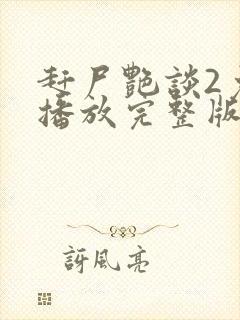 赶尸艷談2
播放完整版
訝風亮